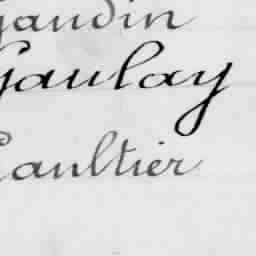 Gaudin
Gaulay
Gaultier